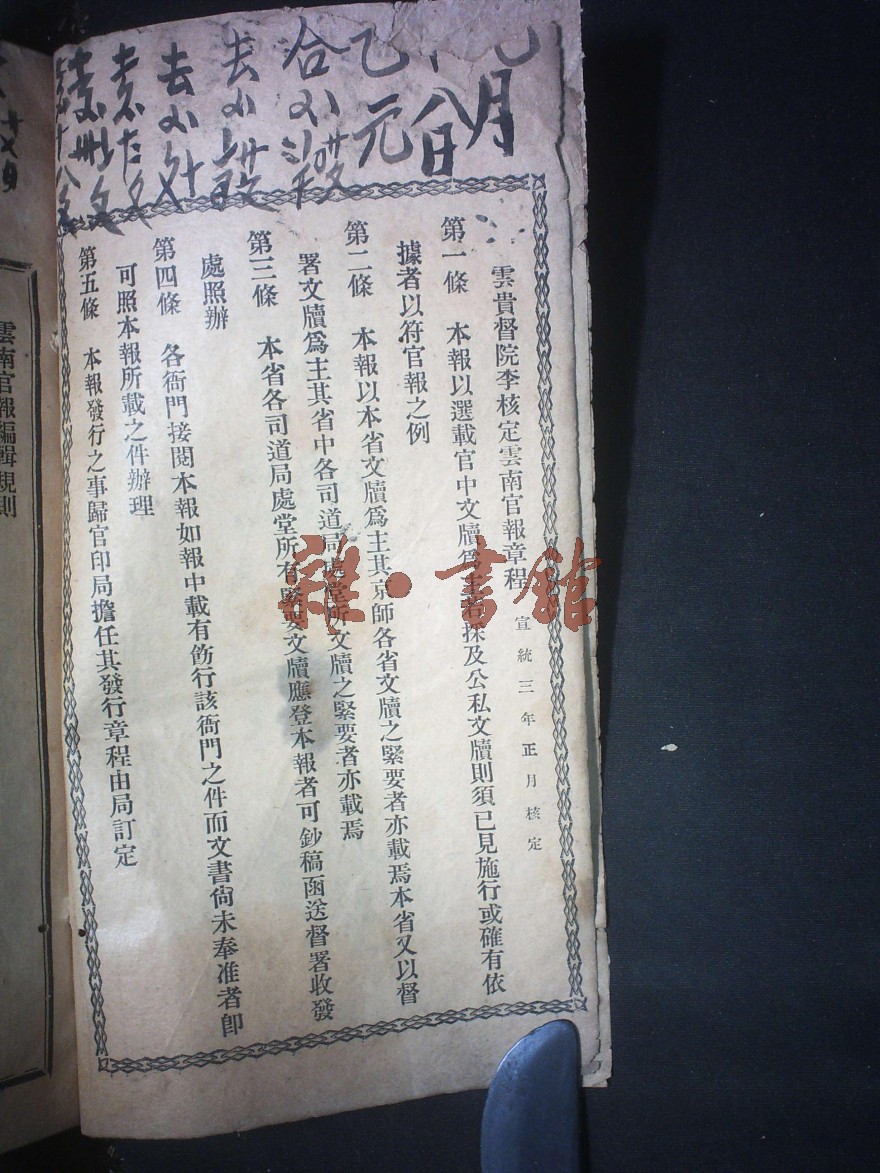 九月
十八日
乙元
合
去
去
雲貴督院李核定雲南官報章程 宣統三年正月核定
第一條 本報以選載官中文牘爲主若採及公私文牘則須已見施行或確有依
據者以符官報之例
第二條 本報以本省文牘爲主其京師各省文牘之緊要者亦載焉本省又以督
署文牘爲主其省中各司道局處堂所文牘之緊要者亦載焉
第三條 本省各司道局處堂所有緊要文牘應登本報者可鈔稿函送督署收發
處照辦
第四條 各衙門接閱本報如報中載有飭行該衙門之件而文書尙未奉准者卽
可照本報所載之件辦理
第五條 本報發行之事歸官印局擔任其發行章程由局訂定
雲南官報編輯規則
雜·書館